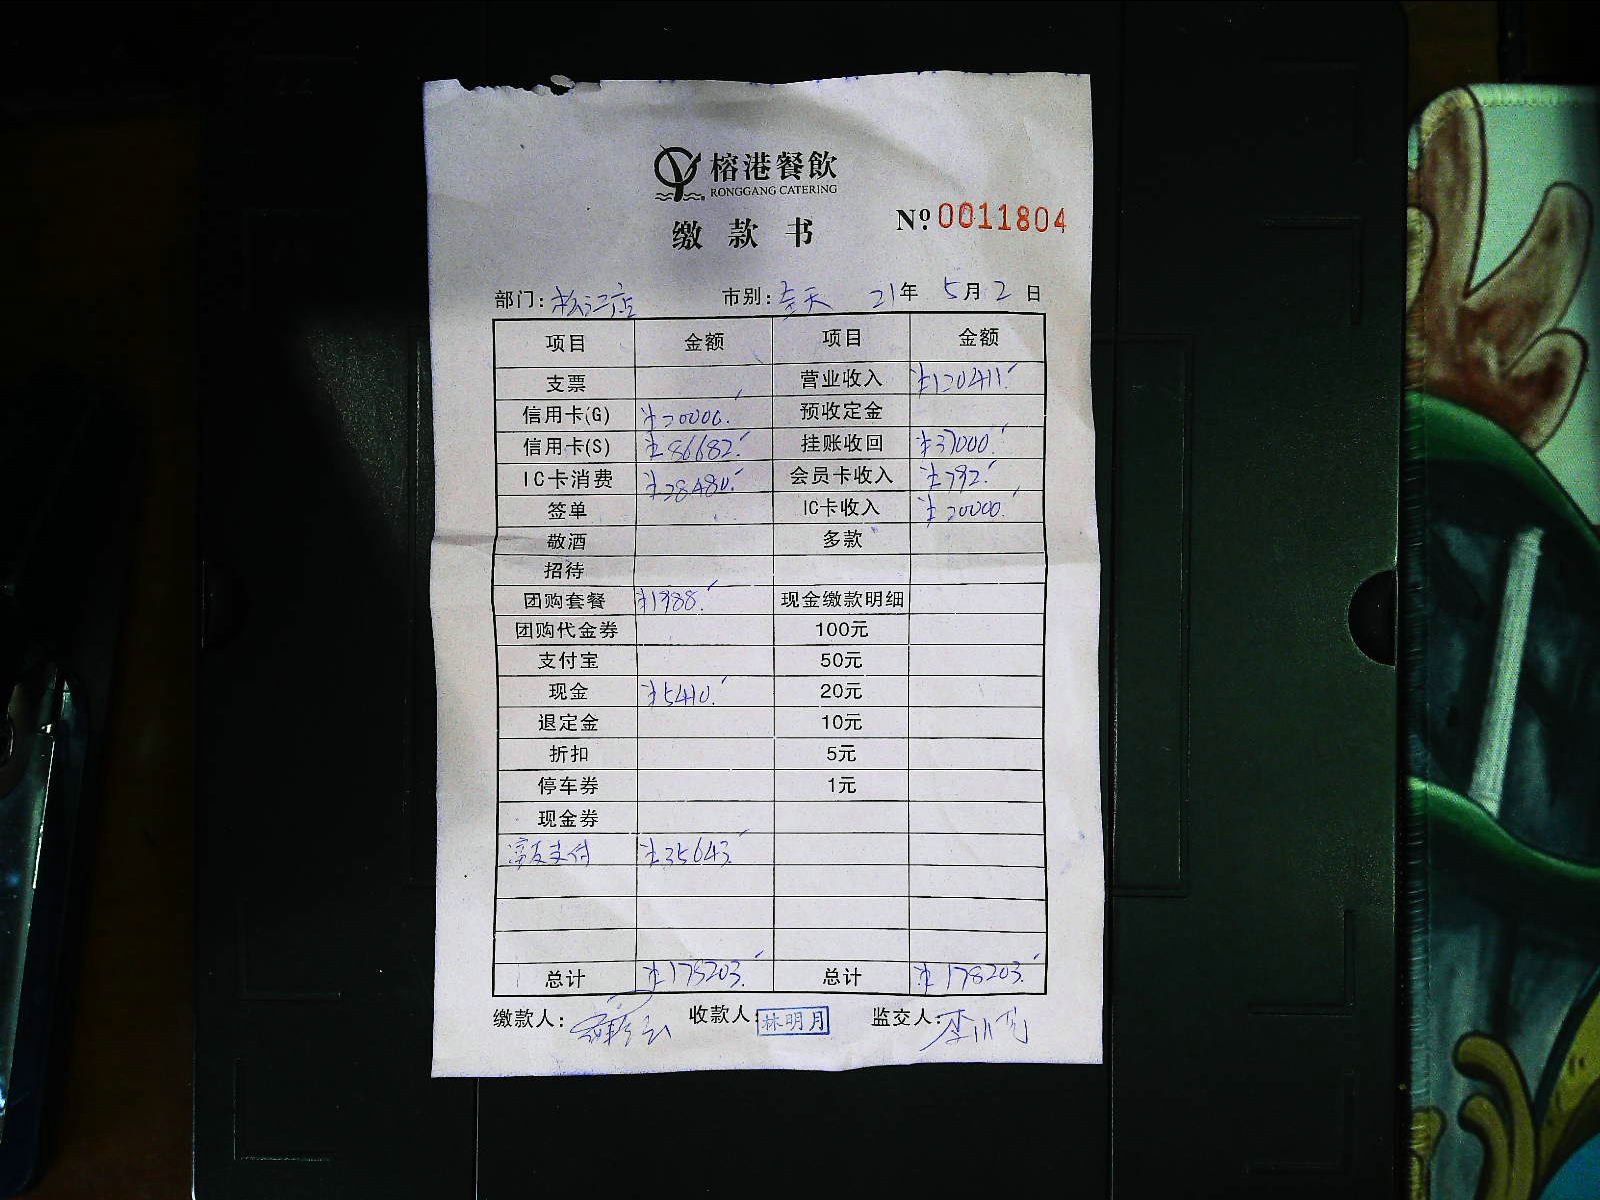 榕港餐飲
RONGGANG CATERING
缴款书 Nº 0011804
部门: 松江店 市别: 全天 21年 5月 2日
项目 金额 项目 金额
支票 营业收入 ¥120411.
信用卡(G) ¥20000. 预收定金
信用卡(S) ¥86682. 挂账收回 ¥37000.
IC卡消费 ¥28480. 会员卡收入 ¥792.
签单 IC卡收入 ¥20000.
敬酒 多款
招待
团购套餐 ¥1988. 现金缴款明细
团购代金券 100元
支付宝 50元
现金 ¥5410. 20元
退定金 10元
折扣 5元
停车券 1元
现金券
支付 ¥35643.
总计 ¥178203. 总计 ¥178203.
缴款人: 收款人: 林明月 监交人: